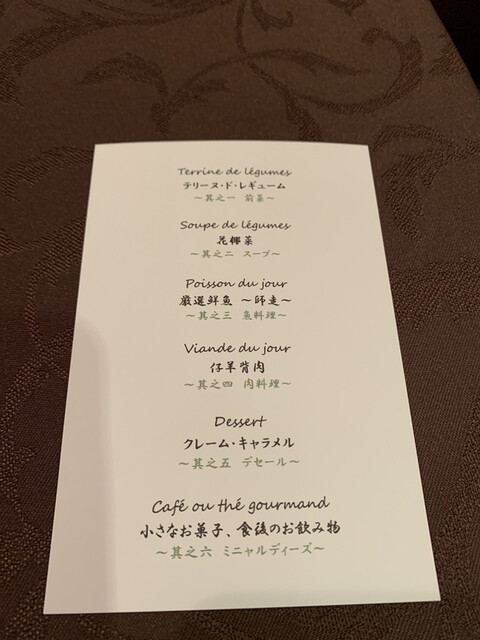 Terrine de légumes
テリーヌ・ド・レギューム
〜其之一 前菜〜
Soupe de légumes
花椰菜
〜其之二 スープ〜
Poisson du jour
厳選鮮魚 〜師走〜
〜其之三 魚料理〜
Viande du jour
仔羊背肉
〜其之四 肉料理〜
Dessert
クレーム・キャラメル
〜其之五 デセール〜
Café ou thé gourmand
小さなお菓子、食後のお飲み物
〜其之六 ミニャルディーズ〜